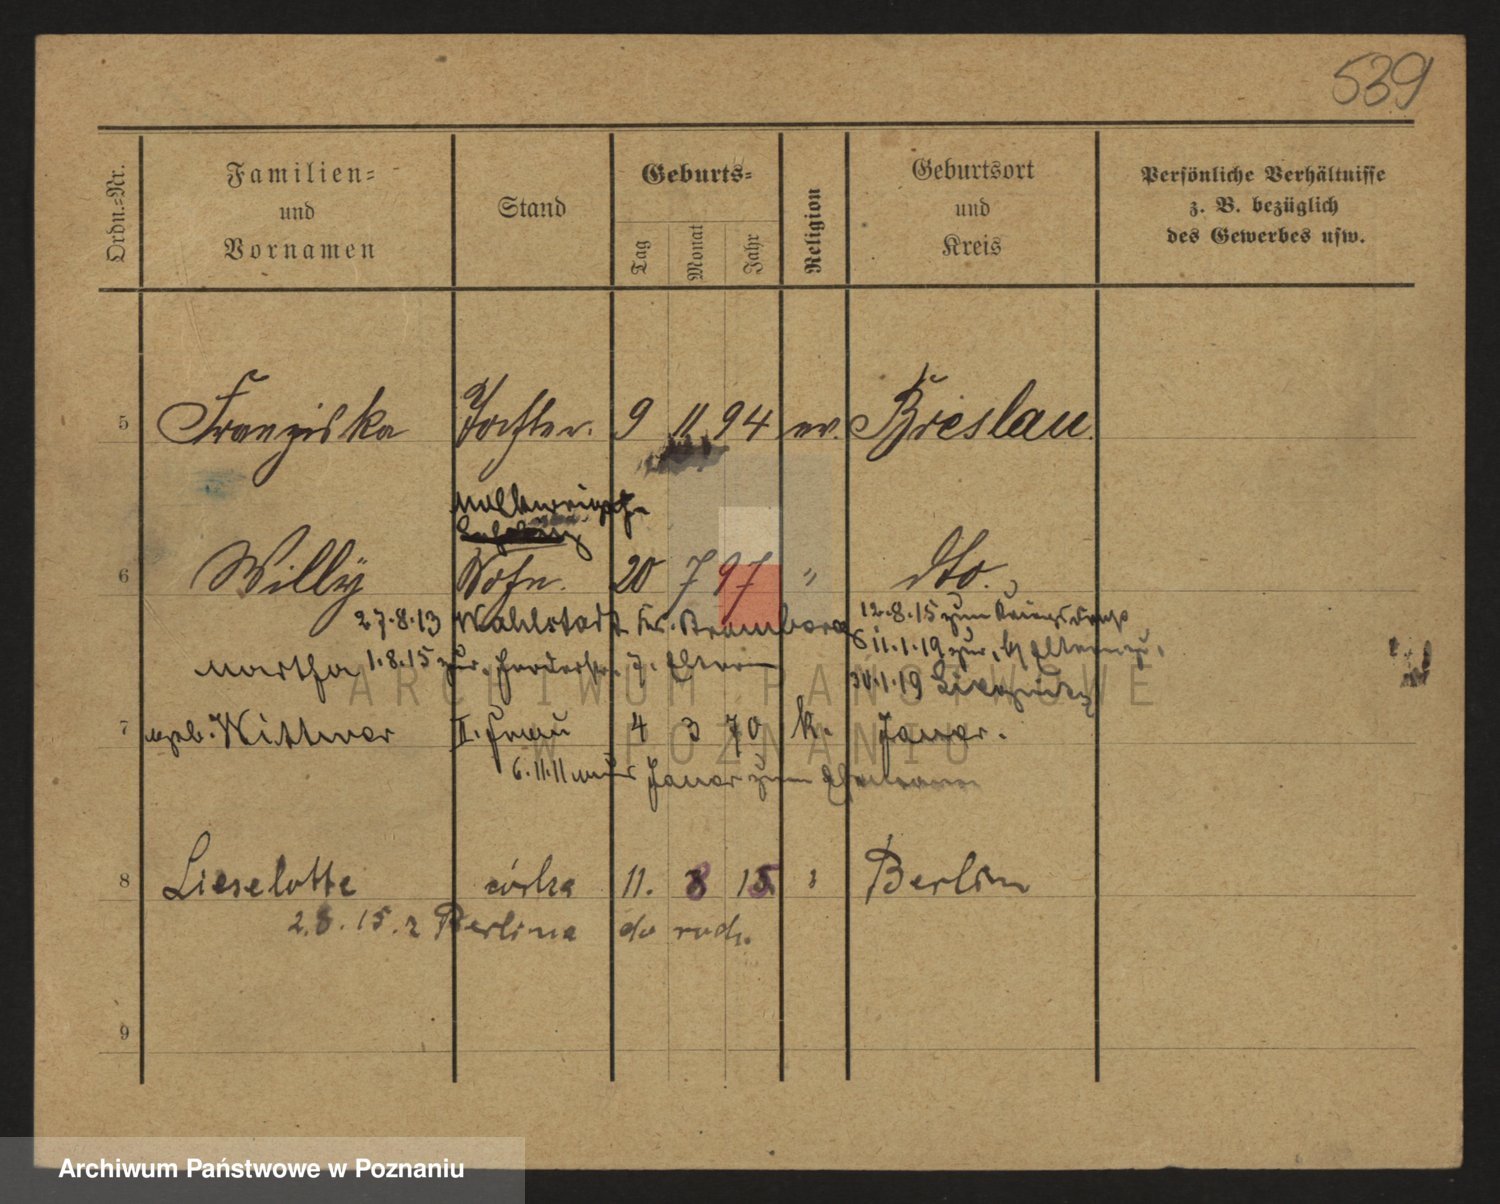 539
Ordn.-Nr.
Familien-
und
Vornamen
Stand
Geburts-
Tag
Monat
Jahr
Religion
Geburtsort
und
Kreis
Persönliche Verhältnisse
z. B. bezüglich
des Gewerbes usw.
5 Franziska Tochter. 9 11 94 ev. Breslau.
6 Willy Sohn. 20 7 97 " dto.
27.8.13 Wahlstadt
12.8.15 zum
11.1.19 zur.
Martha 1.8.15 zur. Eltern
30.1.19
7 geb. Wittwer II. Frau 4 3 70 k. Jauer.
6.11.11 Jauer zum Ehemann
8 Lieselotte córka 11. 8 15 Berlin
2.8.15. z Berlina do rodz.
9
ARCHIWUM PAŃSTWOWE
W POZNANIU
Archiwum Państwowe w Poznaniu